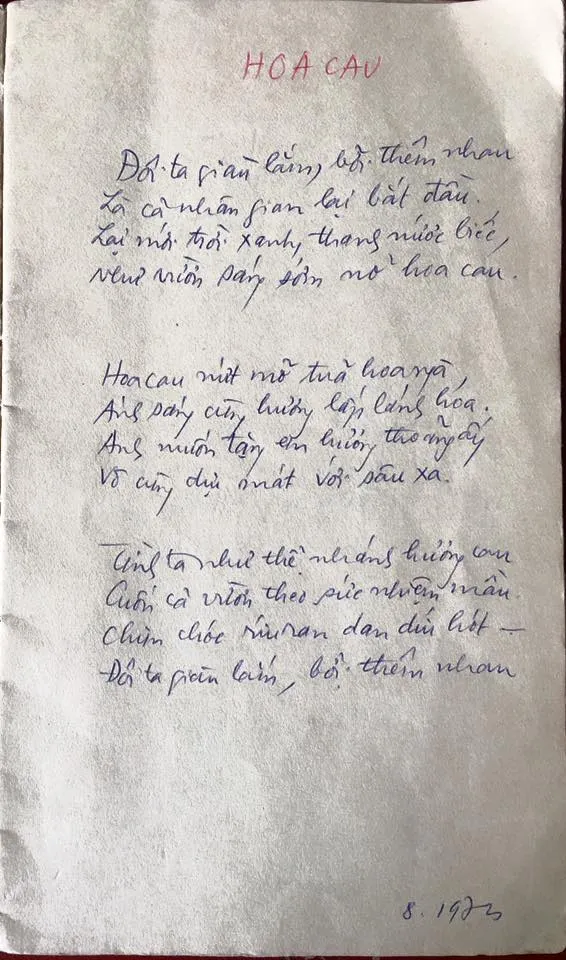 HOA CAU
Đôi ta giàu lắm, bởi thêm nhau
Là cả nhân gian lại bắt đầu.
Lại mới trời xanh, thang nước biếc,
Như vườn sáng sớm nở hoa cau.
Hoa cau nứt mở tuả hoa ngà,
Ánh sáng cùng hương lấp lánh hóa.
Anh muốn tặng em hương thoảng ấy
Vô cùng dịu mát với sâu xa.
Tình ta như thể nhánh hương cau
Cuốn cả vườn theo sức nhiệm mầu.
Chim chóc ríu ran dan díu hót —
Đôi ta giàu lắm, bởi thêm nhau